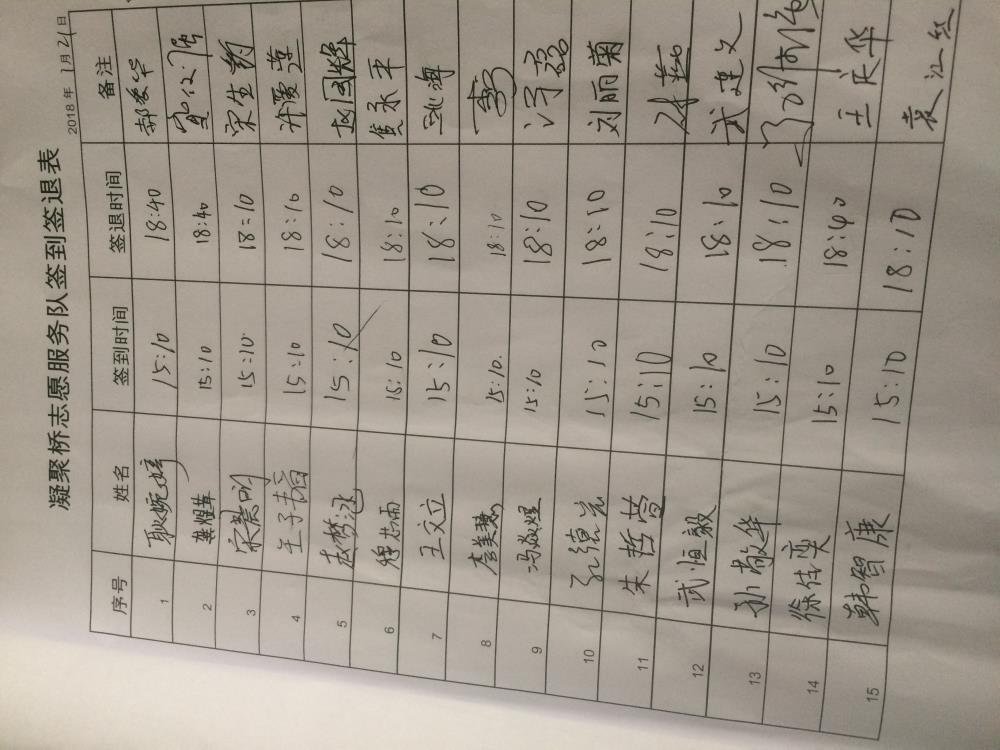 凝聚桥志愿服务队签到签退表
2018年1月21日
序号 姓名 签到时间 签退时间 备注
1 耿婉婷 15:10 18:40 郝爱华
2 15:10 18:40
3 15:10 18:10
4 王子韬 15:10 18:10
5 赵梦冰 15:10 18:10 赵国辉
6 15:10 18:10 焦永平
7 王文立 15:10 18:10 姚海
8 李美慧 15:10. 18:10
9 冯焱煜 15:10 18:10 冯磊
10 孔德芸 15:10 18:10 刘丽菊
11 朱哲莹 15:10 18:10
12 武恒毅 15:10 18:10 武建文
13 孙敬华 15:10 18:10
14 徐仕奕 15:10 18:40 王良华
15 韩智康 15:10 18:10 袁江丝